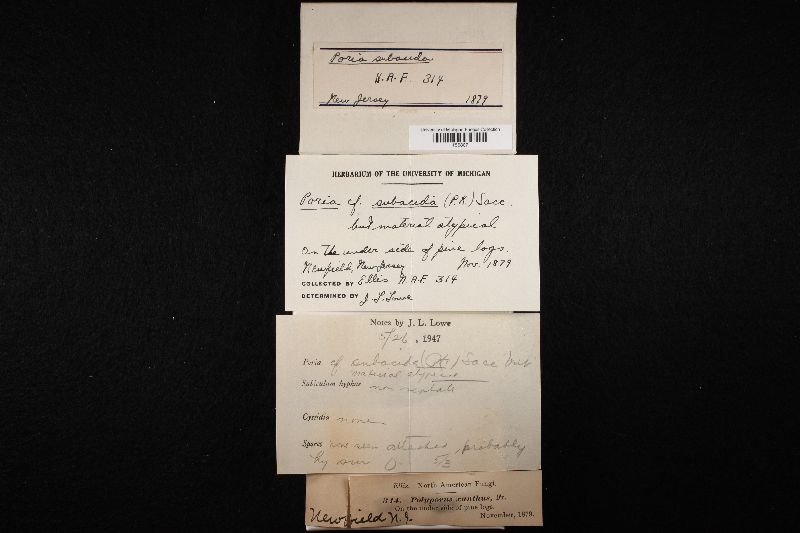 Poria subacida
N.A.F. 314
New Jersey 1879
University of Michigan Fungus Collection
HERBARIUM OF THE UNIVERSITY OF MICHIGAN
Poria cf. subacida (P.K.) Sacc.
but material atypical
On the under side of pine logs.
Newfield, New Jersey Nov. 1879
COLLECTED BY Ellis N.A.F. 314
DETERMINED BY J. L. Lowe
Notes by J. L. Lowe
5/26, 1947
Poria cf subacida (Pk) Sacc but
material atypical
Subiculum hyphae non septate
Cystidia none
Spores one seen attached, probably
hy
Ellis. North American Fungi.
314. Polyporus xanthus, Fr.
On the under side of pine logs.
Newfield N.J. November, 1879.